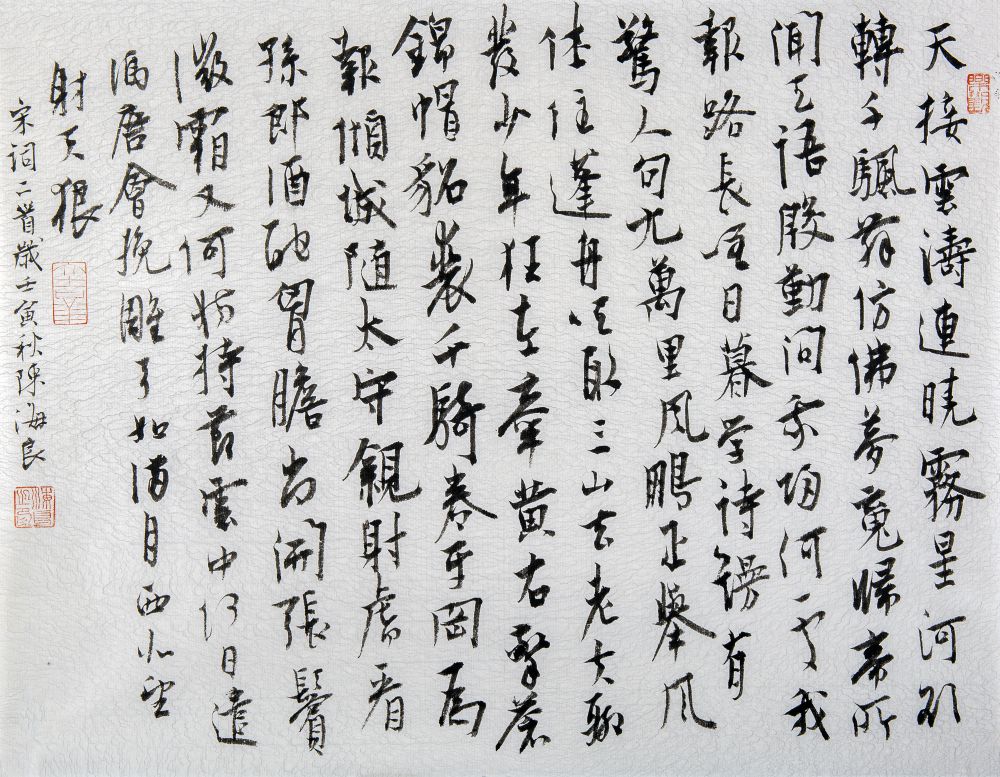 天接雲濤連曉霧星河欲
轉千颿舞仿佛夢魂歸帝所
聞天語殷勤問我歸何處我
報路長嗟日暮学詩謾有
驚人句九萬里風鵬正舉風
休住蓬舟吹取三山去老夫聊
發少年狂左牽黃右擎蒼
錦帽貂裘千騎卷平岡爲
報傾城隨太守親射虎看
孫郎酒酣胷膽尚開張鬢
微霜又何妨持節雲中何日遣
馮唐會挽雕弓如滿月西北望
射天狼
宋詞二首歲壬寅秋陳海良